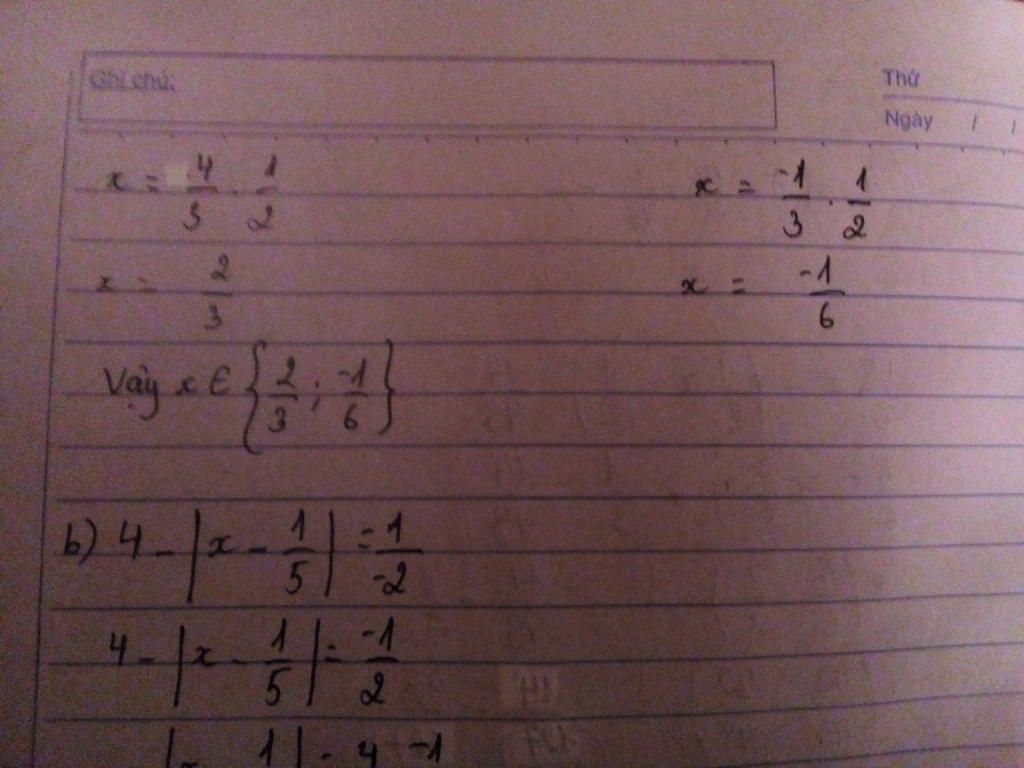 Ghi chú:
Thứ
Ngày / /
x = 4/3 . 1/2
x = -1/3 . 1/2
x = 2/3
x = -1/6
Vậy x ∈ {2/3 ; -1/6}
b) 4 - |x - 1/5| = 1/-2
4 - |x - 1/5| = -1/2